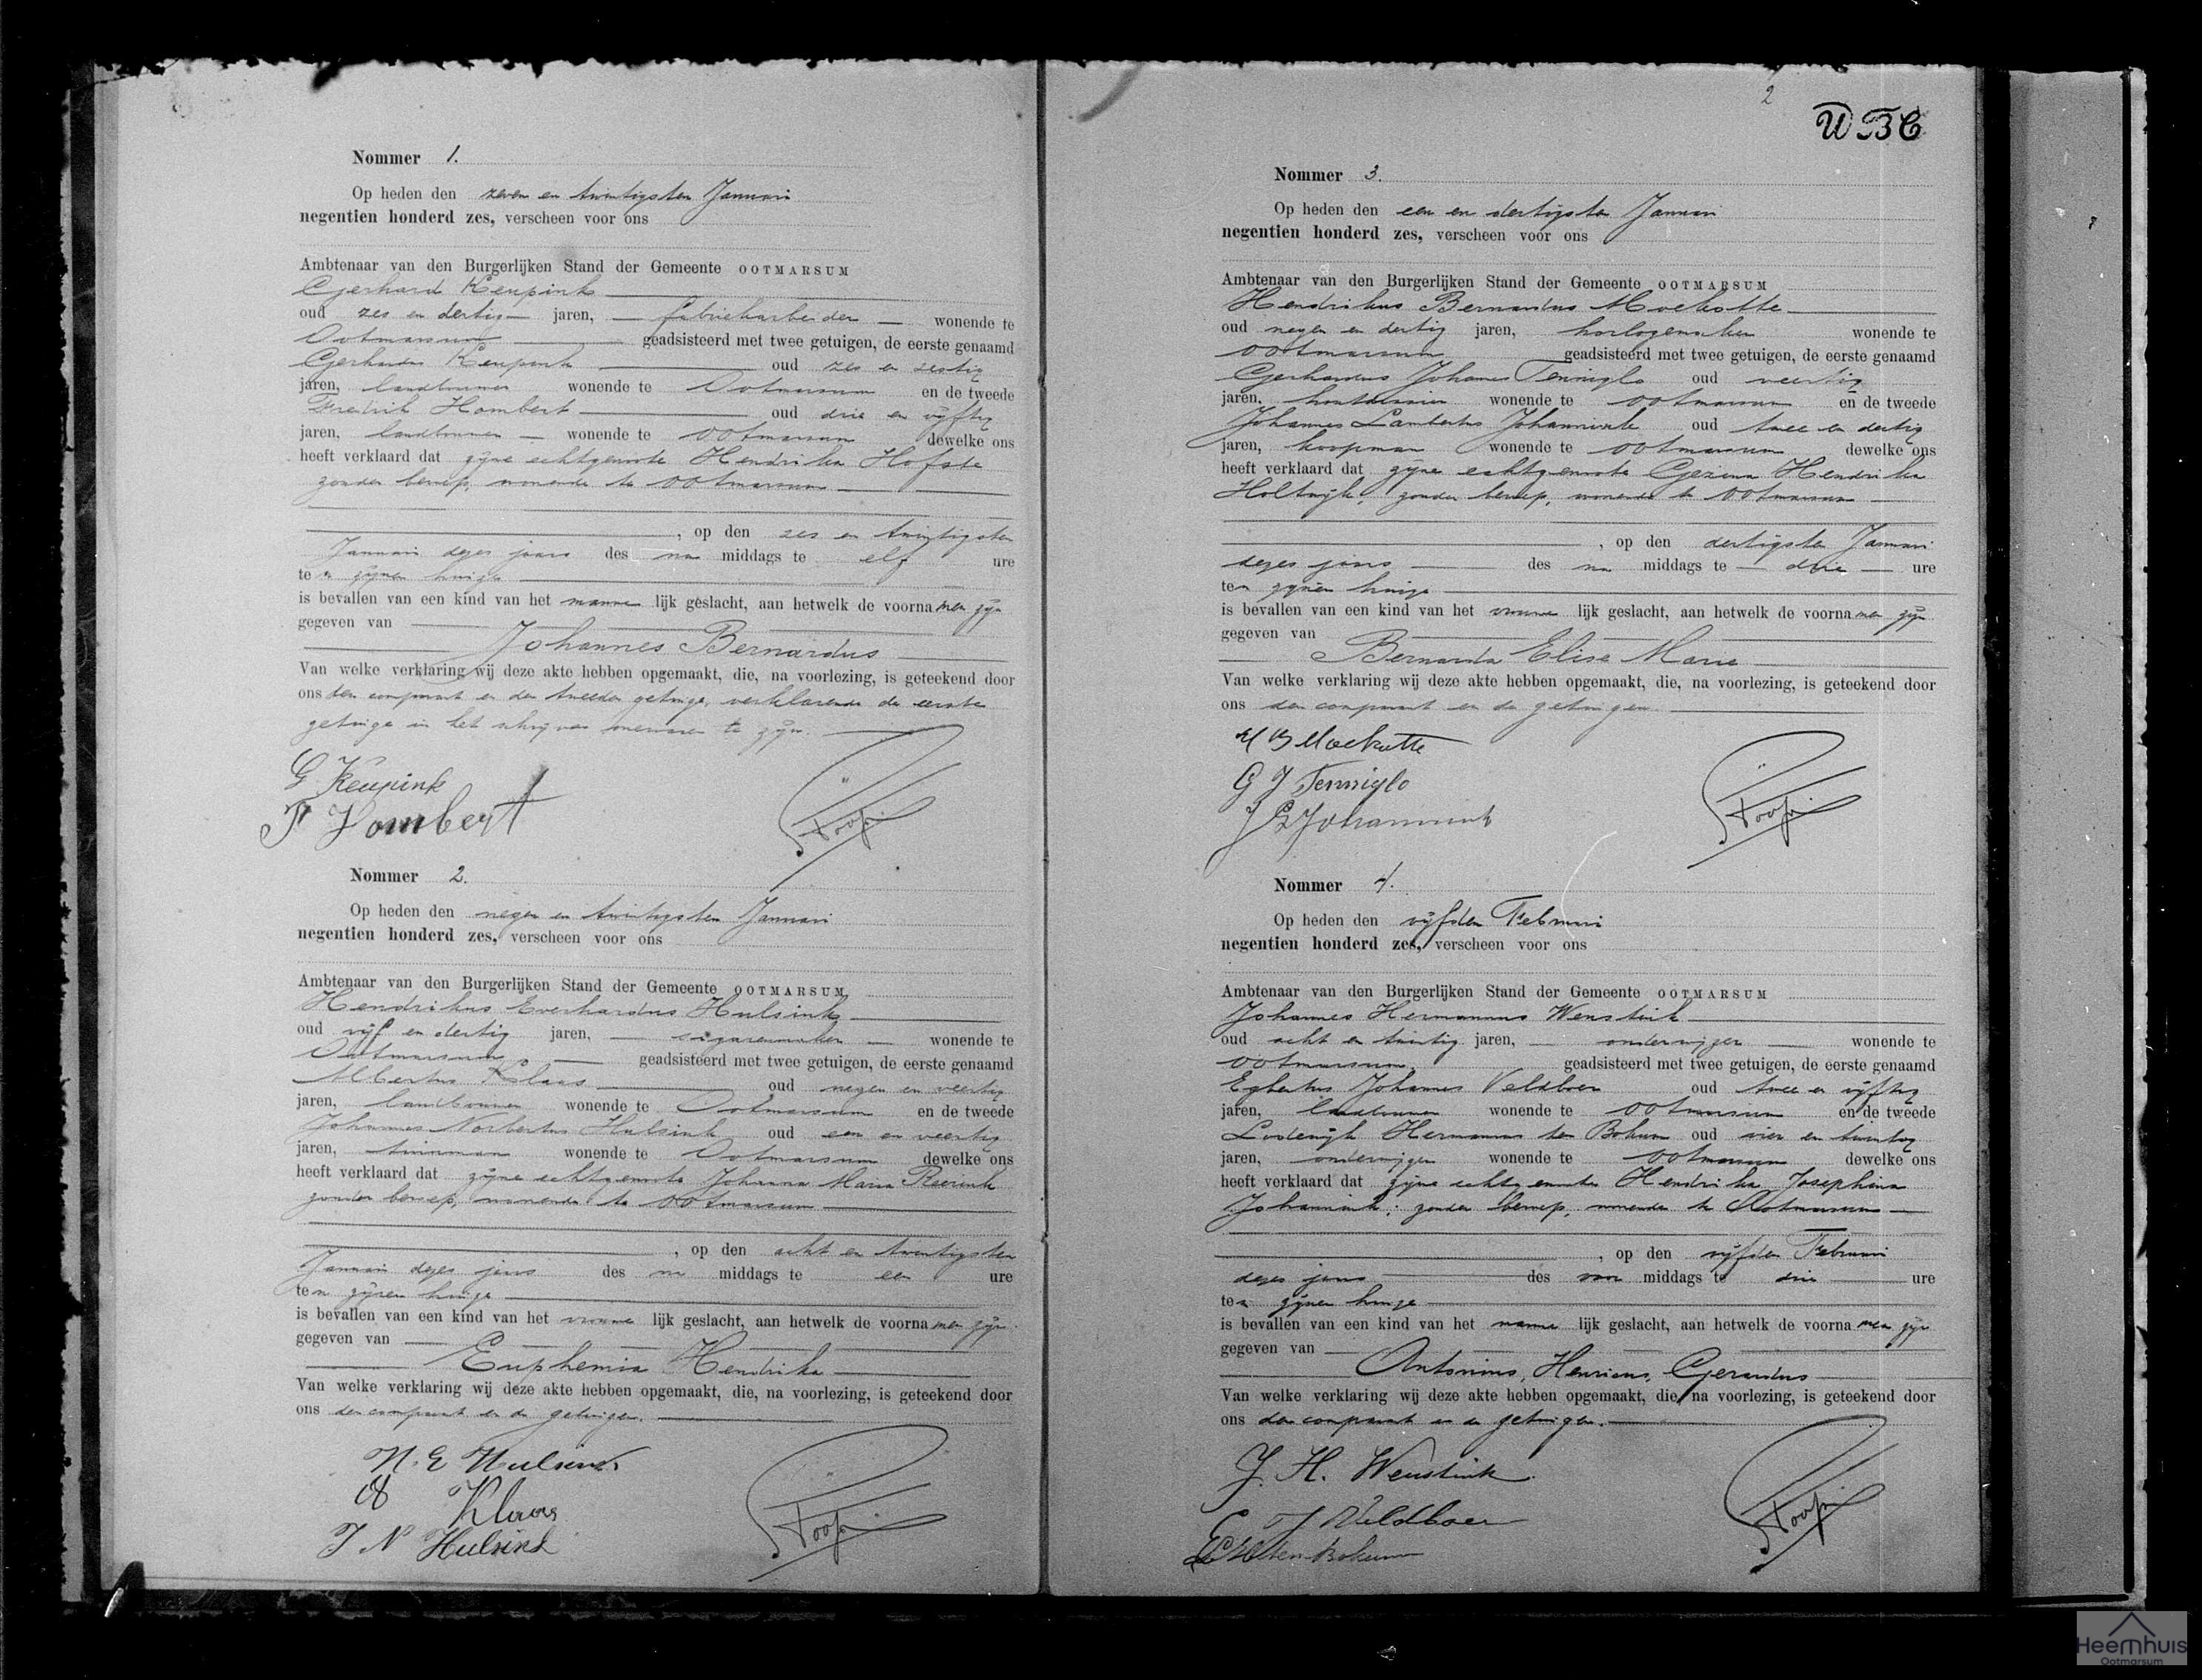 Nommer 1.
Op heden den zeven en twintigsten Januari
negentien honderd zes, verscheen voor ons
Ambtenaar van den Burgerlijken Stand der Gemeente OOTMARSUM
Gerhard Keupink
oud zes en dertig jaren, fabriekarbeider wonende te
Ootmarsum geadsisteerd met twee getuigen, de eerste genaamd
Gerhardus Keupink oud zes en zestig
jaren, landbouwer wonende te Ootmarsum en de tweede
Fredrik Hombert oud drie en vijftig
jaren, landbouwer wonende te Ootmarsum dewelke ons
heeft verklaard dat zijne echtgenoote Hendrika Hofste
zonder beroep, wonende te Ootmarsum
, op den zes en twintigsten
Januari dezes jaars des na middags te elf ure
ten zijnen huize
is bevallen van een kind van het manne lijk geslacht, aan hetwelk de voorna men zijn
gegeven van
Johannes Bernardus
Van welke verklaring wij deze akte hebben opgemaakt, die, na voorlezing, is geteekend door
ons den comparant en den tweeden getuige, verklarende de eerste
getuige in het schrijven onervaren te zijn.
G Keupink
F Hombert
Nommer 2.
Op heden den negen en twintigsten Januari
negentien honderd zes, verscheen voor ons
Ambtenaar van den Burgerlijken Stand der Gemeente OOTMARSUM
Hendrikus Everhardus Hulsink
oud vijf en dertig jaren, sigarenmaker wonende te
Ootmarsum geadsisteerd met twee getuigen, de eerste genaamd
Albertus Klaas oud negen en veertig
jaren, landbouwer wonende te Ootmarsum en de tweede
Johannes Norbertus Hulsink oud een en veertig
jaren, wonende te Ootmarsum dewelke ons
heeft verklaard dat zijne echtgenoote Johanna Maria Reerink
zonder beroep, wonende te Ootmarsum
, op den acht en twintigsten
Januari dezes jaars des na middags te een ure
ten zijnen huize
is bevallen van een kind van het vrouwe lijk geslacht, aan hetwelk de voorna men zijn
gegeven van
Euphemia Hendrika
Van welke verklaring wij deze akte hebben opgemaakt, die, na voorlezing, is geteekend door
ons den comparant en de getuigen.
H. E Hulsink
A Klaas
J N Hulsink
2
WBC
Nommer 3.
Op heden den een en dertigsten Januari
negentien honderd zes, verscheen voor ons
Ambtenaar van den Burgerlijken Stand der Gemeente OOTMARSUM
Hendrikus Bernardus Moekotte
oud negen en dertig jaren, horlogemaker wonende te
Ootmarsum geadsisteerd met twee getuigen, de eerste genaamd
Gerhardus Johannes Tenniglo oud veertig
jaren, wonende te Ootmarsum en de tweede
Johannes Lambertus Johannink oud twee en dertig
jaren, koopman wonende te Ootmarsum dewelke ons
heeft verklaard dat zijne echtgenoote Gezina Hendrika
Holtwijk, zonder beroep, wonende te Ootmarsum
, op den dertigsten Januari
dezes jaars des na middags te drie ure
ten zijnen huize
is bevallen van een kind van het vrouwe lijk geslacht, aan hetwelk de voorna men zijn
gegeven van
Bernarda Elisa Maria
Van welke verklaring wij deze akte hebben opgemaakt, die, na voorlezing, is geteekend door
ons den comparant en de getuigen.
H B Moekotte
G J Tenniglo
J L Johannink
Nommer 4.
Op heden den vijfden Februari
negentien honderd zes, verscheen voor ons
Ambtenaar van den Burgerlijken Stand der Gemeente OOTMARSUM
Johannes Hermannus Wenstink
oud acht en twintig jaren, onderwijzer wonende te
Ootmarsum geadsisteerd met twee getuigen, de eerste genaamd
Egbertus Johannes Veldboer oud twee en vijftig
jaren, landbouwer wonende te Ootmarsum en de tweede
Lodewijk Hermannus ten Bokum oud vier en twintig
jaren, onderwijzer wonende te Ootmarsum dewelke ons
heeft verklaard dat zijne echtgenoote Hendrika Josephina
Johannink, zonder beroep, wonende te Ootmarsum
, op den vijfden Februari
dezes jaars des voor middags te drie ure
ten zijnen huize
is bevallen van een kind van het manne lijk geslacht, aan hetwelk de voorna men zijn
gegeven van
Antonius, Henricus, Gerardus
Van welke verklaring wij deze akte hebben opgemaakt, die, na voorlezing, is geteekend door
ons den comparant en de getuigen.
J. H. Wenstink
E J Veldboer
L H ten Bokum
Heemhuis
Ootmarsum